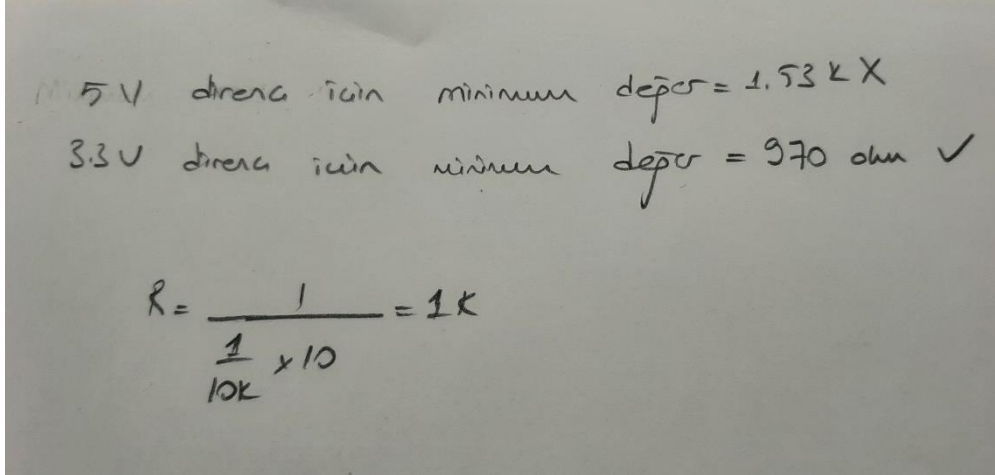 5 V direnc icin minimum değer = 1.53 k X
3.3 V direnc icin minimum değer = 970 ohm ✓
R = 1 / (1/10K x 10) = 1K